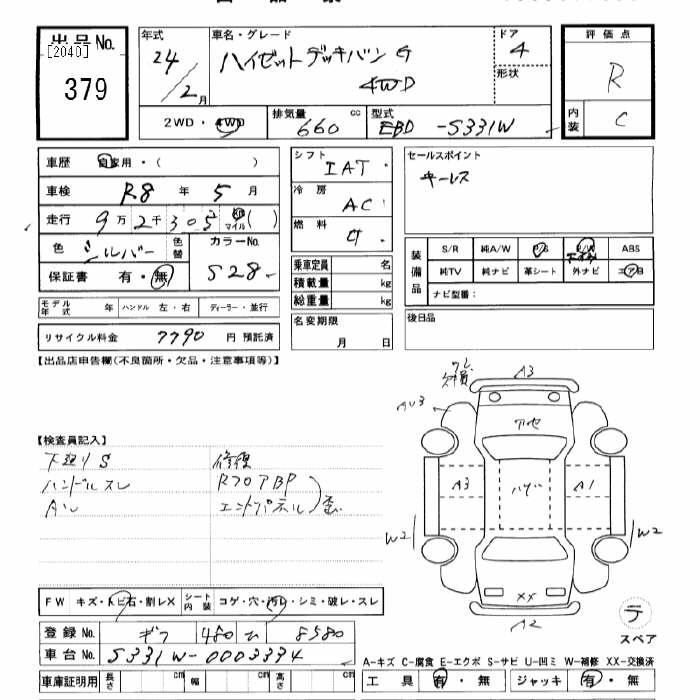 出品No.
[2040]
379
年式
24/2月
車名・グレード
ハイゼットデッキバン G
4WD
ドア
4
形状
評価点
R
内装
C
2WD・4WD
排気量
660 cc
型式
EBD-S331W
車歴 自家用・( )
車検 R8年5月
走行 9万2千305 マイル( )
色 シルバー 色替
カラーNo.
S28
保証書 有・無
モデル年式 年 ハンドル 左・右 ディーラー・並行
リサイクル料金 7790 円 預託済
シフト IAT
冷房 AC
燃料
乗車定員 名
積載量 kg
総重量 kg
名変期限
月 日
セールスポイント
キーレス
装備品
S/R 純A/W P/S P/W ABS
純TV 純ナビ 革シート 外ナビ エアB
ナビ型番：
後日品
【出品店申告欄(不良箇所・欠品・注意事項等)】
【検査員記入】
下廻りS 修復
ハンドルスレ RフロアBP
Aル エンドパネル 歪
ワレ
欠損
A3
AU3
A3
A1
W2
W2
XX
A2
テ
スペア
FW キズ・トビ石・割レX シート内装 コゲ・穴・汚レ・シミ・破レ・スレ
登録No. ギフ 480 ム 8580
車台No. S331W-0003334
車庫証明用 長さ cm 幅 cm 高さ cm
A-キズ C-腐食 E-エクボ S-サビ U-凹ミ W-補修 XX-交換済
工具 有・無 ジャッキ 有・無